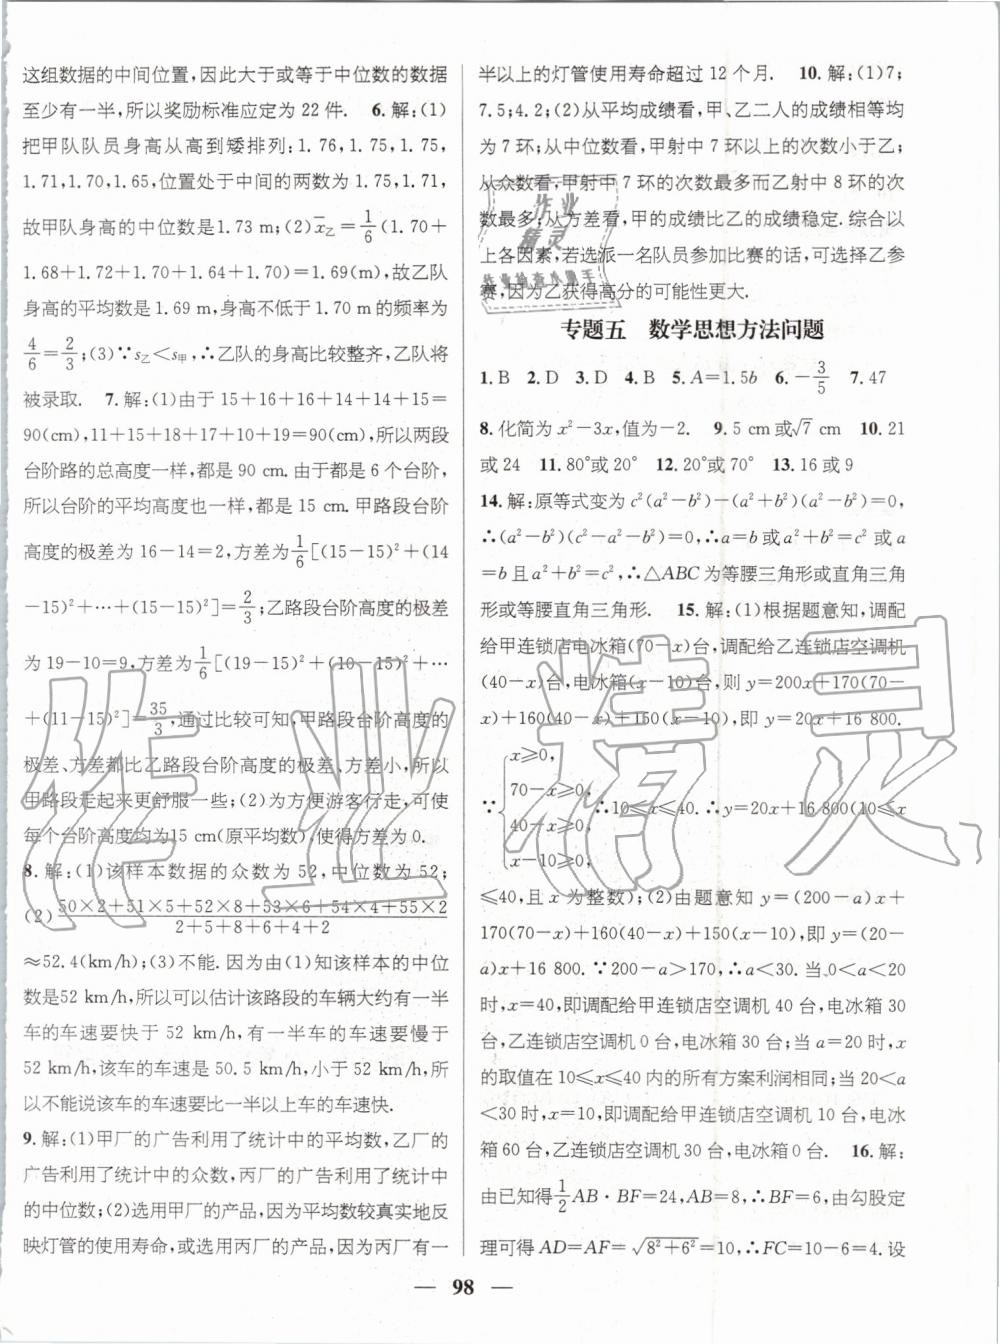 这组数据的中间位置,因此大于或等于中位数的数据
至少有一半,所以奖励标准应定为 22 件. 6. 解:(1)
把甲队队员身高从高到矮排列:1.76,1.75,1.75,
1.71,1.70,1.65,位置处于中间的两数为 1.75,1.71,
故甲队身高的中位数是 1.73 m;(2)x̄乙=1/6(1.70+
1.68+1.72+1.70+1.64+1.70)=1.69(m),故乙队
身高的平均数是 1.69 m,身高不低于 1.70 m 的频率为
4/6=2/3;(3)∵s乙<s甲,∴乙队的身高比较整齐,乙队将
被录取. 7. 解:(1)由于 15+16+16+14+14+15=
90(cm),11+15+18+17+10+19=90(cm),所以两段
台阶路的总高度一样,都是 90 cm.由于都是 6 个台阶,
所以台阶的平均高度也一样,都是 15 cm.甲路段台阶
高度的极差为 16-14=2,方差为1/6[(15-15)²+(14
-15)²+…+(15-15)²]=2/3;乙路段台阶高度的极差
为 19-10=9,方差为1/6[(19-15)²+(10-15)²+…
+(11-15)²]=35/3,通过比较可知,甲路段台阶高度的
极差、方差都比乙路段台阶高度的极差、方差小,所以
甲路段走起来更舒服一些;(2)为方便游客行走,可使
每个台阶高度均为15 cm(原平均数),使得方差为 0.
8. 解:(1)该样本数据的众数为 52,中位数为 52;
(2)(50×2+51×5+52×8+53×6+54×4+55×2)/(2+5+8+6+4+2)
≈52.4(km/h);(3)不能.因为由(1)知该样本的中位
数是52 km/h,所以可以估计该路段的车辆大约有一半
车的车速要快于 52 km/h,有一半车的车速要慢于
52 km/h,该车的车速是 50.5 km/h,小于 52 km/h,所
以不能说该车的车速要比一半以上车的车速快.
9. 解:(1)甲厂的广告利用了统计中的平均数,乙厂的
广告利用了统计中的众数,丙厂的广告利用了统计中
的中位数;(2)选用甲厂的产品,因为平均数较真实地反
映灯管的使用寿命,或选用丙厂的产品,因为丙厂有一
半以上的灯管使用寿命超过 12 个月. 10. 解:(1)7;
7.5;4.2;(2)从平均成绩看,甲、乙二人的成绩相等均
为 7 环;从中位数看,甲射中 7 环以上的次数小于乙;
从众数看,甲射中 7 环的次数最多而乙射中 8 环的次
数最多;从方差看,甲的成绩比乙的成绩稳定.综合以
上各因素,若选派一名队员参加比赛的话,可选择乙参
赛,因为乙获得高分的可能性更大.
专题五 数学思想方法问题
1. B 2. D 3. D 4. B 5. A=1.5b 6. -3/5 7. 47
8. 化简为 x²-3x,值为-2. 9. 5 cm或√7 cm 10. 21
或 24 11. 80°或 20° 12. 20°或 70° 13. 16 或 9
14. 解:原等式变为 c²(a²-b²)-(a²+b²)(a²-b²)=0,
∴(a²-b²)(c²-a²-b²)=0,∴a=b 或 a²+b²=c² 或 a
=b 且 a²+b²=c²,∴△ABC 为等腰三角形或直角三角
形或等腰直角三角形. 15. 解:(1)根据题意知,调配
给甲连锁店电冰箱(70-x)台,调配给乙连锁店空调机
(40-x)台,电冰箱(x-10)台,则 y=200x+170(70-
x)+160(40-x)+150(x-10),即 y=20x+16 800.
∵{x≥0, 70-x≥0, 40-x≥0, x-10≥0, ∴10≤x≤40.∴y=20x+16 800(10≤x
≤40,且 x 为整数);(2)由题意知 y=(200-a)x+
170(70-x)+160(40-x)+150(x-10),即 y=(20-
a)x+16 800.∵200-a>170,∴a<30.当 0<a<20
时,x=40,即调配给甲连锁店空调机 40 台,电冰箱 30
台,乙连锁店空调机 0 台,电冰箱 30 台;当 a=20 时,x
的取值在 10≤x≤40 内的所有方案利润相同;当 20<a
<30 时,x=10,即调配给甲连锁店空调机 10 台,电冰
箱 60 台,乙连锁店空调机 30 台,电冰箱 0 台. 16. 解:
由已知得1/2AB·BF=24,AB=8,∴BF=6,由勾股定
理可得 AD=AF=√(8²+6²)=10,∴FC=10-6=4.设
— 98 —
作业精灵
作业
精灵
作业检查小助手